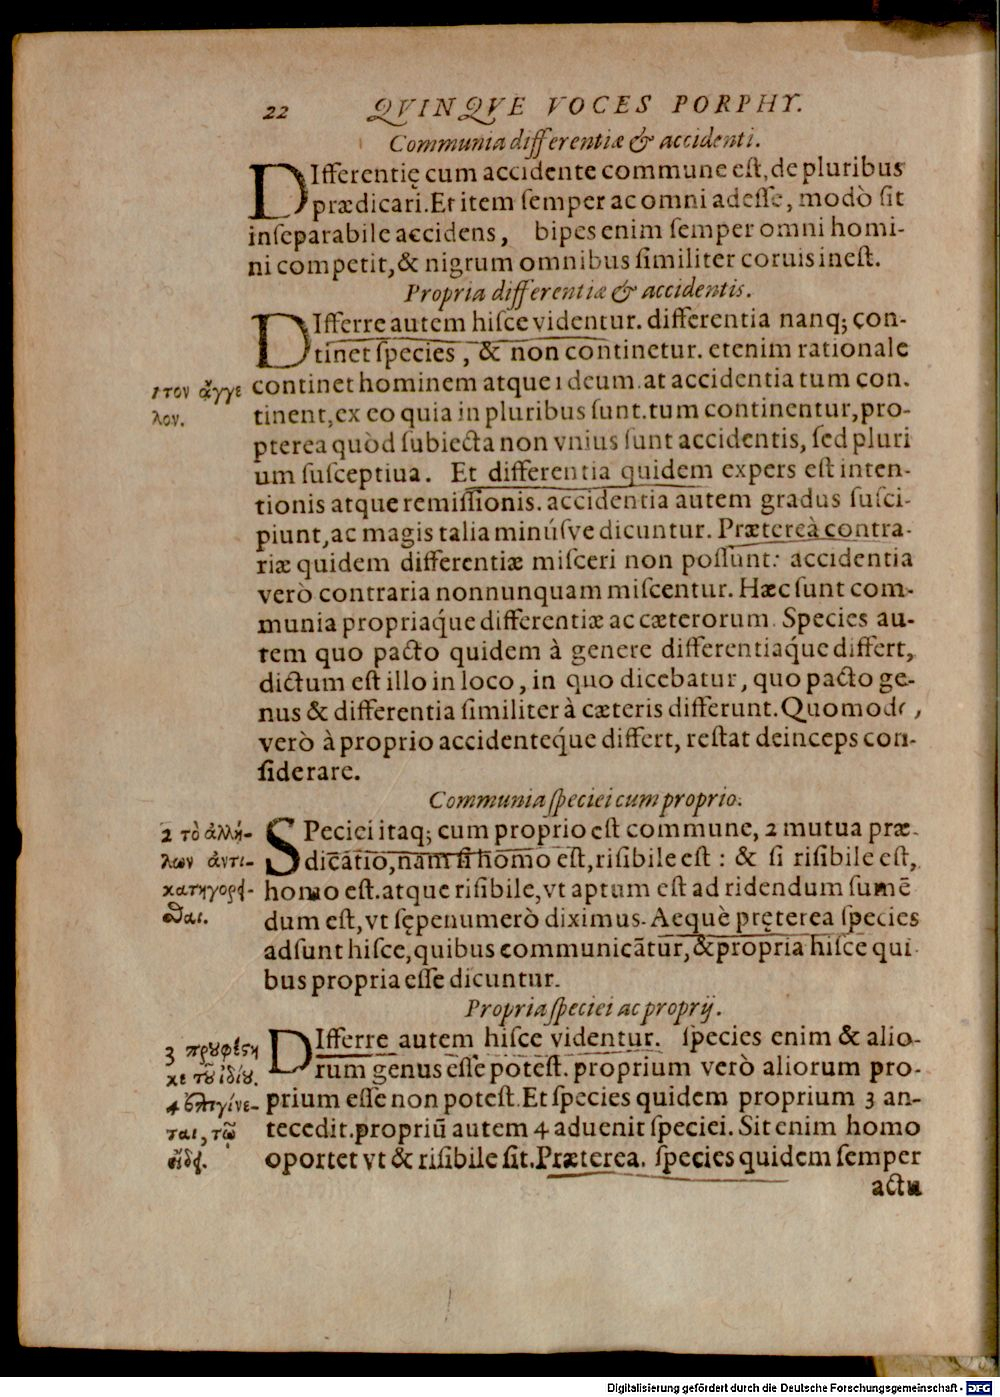 22 QVINQVE VOCES PORPHY.
Communia differentiæ & accidenti.
DIfferentię cum accidente commune est, de pluribus
prædicari. Et item semper ac omni adesse, modò sit
inseparabile accidens, bipes enim semper omni homi-
ni competit, & nigrum omnibus similiter coruis inest.
Propria differentiæ & accidentis.
DIfferre autem hisce videntur. differentia nanq; con-
tinet species, & non continetur. etenim rationale
continet hominem atque 1 deum. at accidentia tum con-
tinent, ex eo quia in pluribus sunt. tum continentur, pro-
pterea quòd subiecta non vnius sunt accidentis, sed pluri
um susceptiua. Et differentia quidem expers est inten-
tionis atque remissionis. accidentia autem gradus susci-
piunt, ac magis talia minúsve dicuntur. Prætereà contra-
riæ quidem differentiæ misceri non possunt: accidentia
verò contraria nonnunquam miscentur. Hæc sunt com-
munia propriaq́ue differentiæ ac cæterorum. Species au-
tem quo pacto quidem à genere differentiaq́ue differt,
dictum est illo in loco, in quo dicebatur, quo pacto ge-
nus & differentia similiter à cæteris differunt. Quomodo,
verò à proprio accidenteq́ue differt, restat deinceps con-
siderare.
1 τον ἄγγε
λον.
Communia speciei cum proprio.
SPeciei itaq; cum proprio est commune, 2 mutua præ-
dicatio, nam si homo est, risibile est: & si risibile est,
homo est. atque risibile, vt aptum est ad ridendum sumē
dum est, vt sępenumerò diximus. Aequè pręterea species
adsunt hisce, quibus communicãtur, & propria hisce qui
bus propria esse dicuntur.
2 τὸ ἀλλή-
λων ἀντι-
κατηγορεῖ-
σθαι.
Propria speciei ac proprij.
DIfferre autem hisce videntur. species enim & alio-
rum genus esse potest. proprium verò aliorum pro-
prium esse non potest. Et species quidem proprium 3 an-
tecedit. propriū autem 4 aduenit speciei. Sit enim homo
oportet vt & risibile sit. Præterea. species quidem semper
actu
3 προυφέστη
κε τοῦ ἰδίου.
4 ἐπιγίνε-
ται, τῷ
εἴδει.
Digitalisierung gefördert durch die Deutsche Forschungsgemeinschaft - DFG